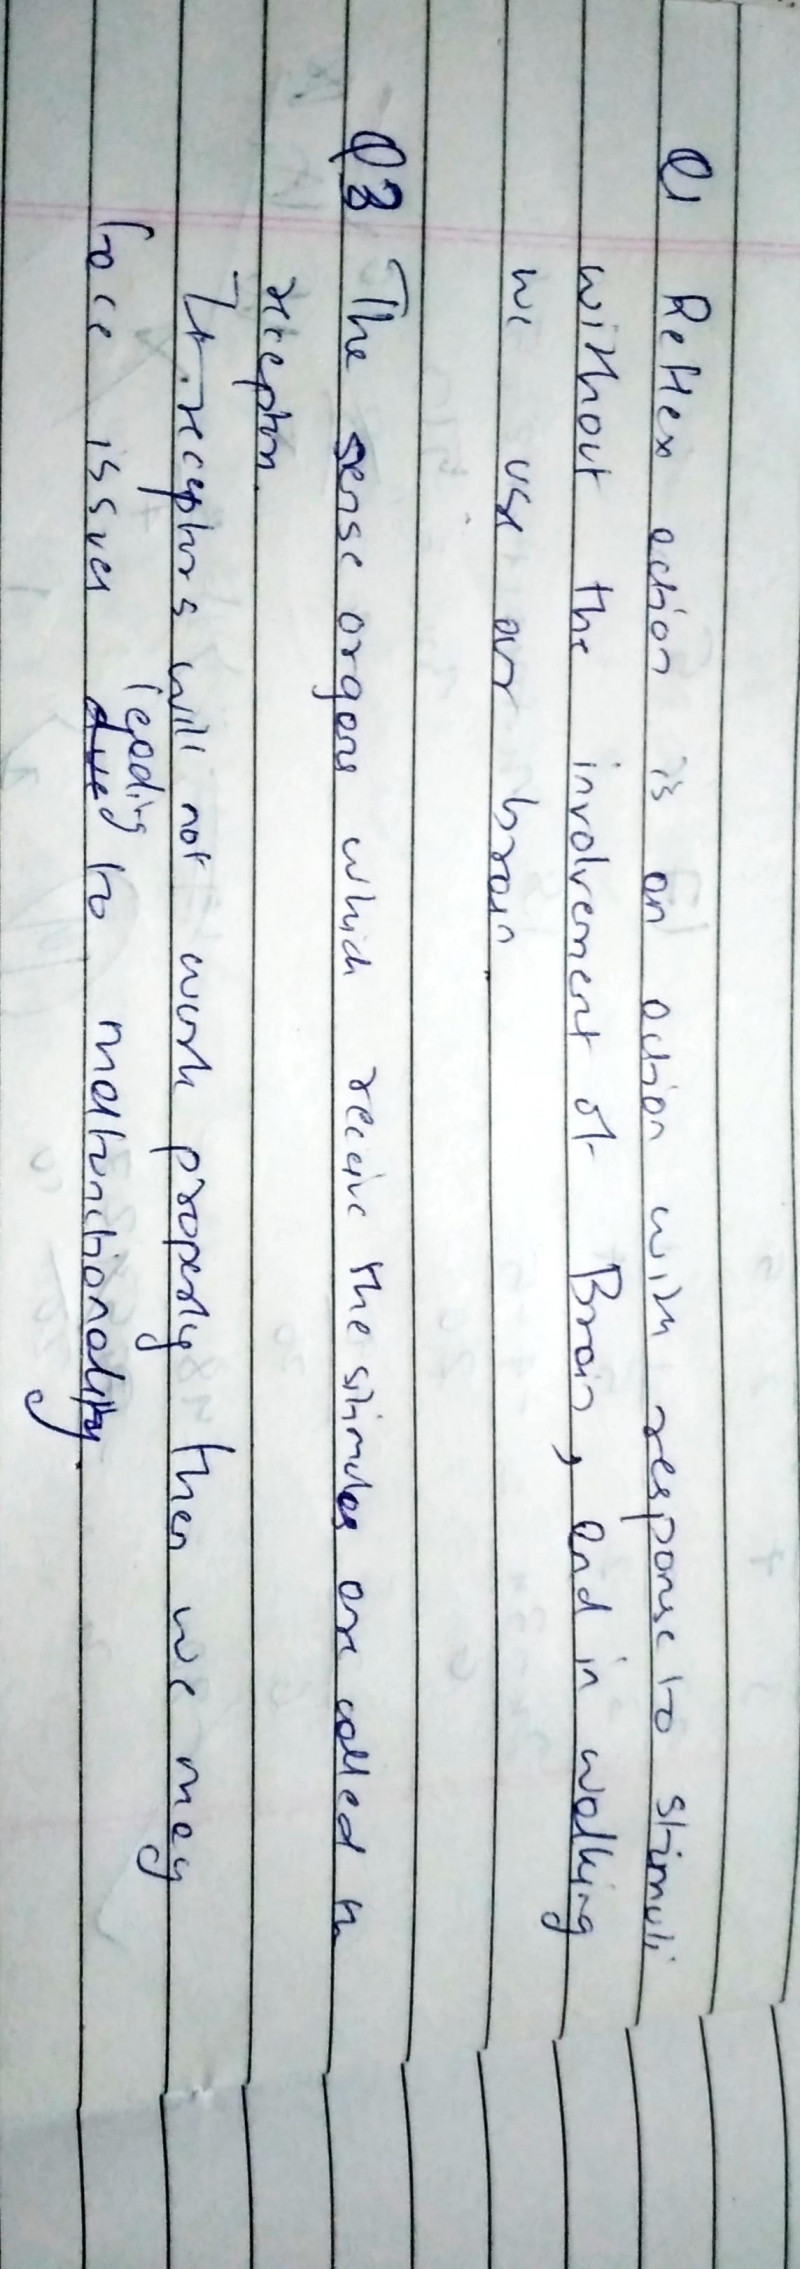 Q1 Reflex action is an action with response to stimuli
without the involvement of Brain, and in walking
we use our brain.
Q3 The sense organs which receive the stimulus are called
receptors.
If receptors will not work properly then we may
face issues leading to malfunctionality.